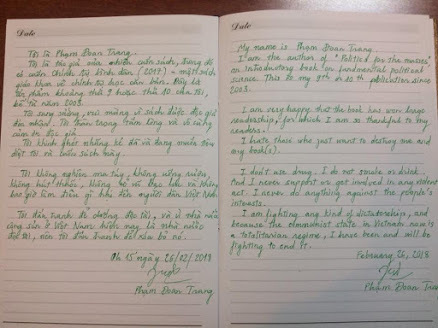 Date
Tôi là Phạm Đoan Trang.
Tôi là tác giả của nhiều cuốn sách, trong đó
có cuốn Chính trị bình dân (2017) - một sách
giáo khoa về chính trị học căn bản. Đây là
tác phẩm khoảng thứ 9 hoặc thứ 10 của tôi,
kể từ năm 2008.
Tôi sung sướng, vui mừng vì sách được độc giả
đón nhận. Tôi trân trọng tấm lòng và vô cùng
cảm ơn độc giả.
Tôi khinh ghét những kẻ đã và đang muốn tiêu
diệt tôi và cuốn sách này.
Tôi không nghiện ma túy, không uống rượu,
không hút thuốc, không hề có bạo lực và không
bao giờ làm điều gì hại đến người dân Việt Nam.
Tôi đấu tranh để chống độc tài, và vì nhà nước
cộng sản ở Việt Nam hiện nay là nhà nước
độc tài, nên tôi đấu tranh để xóa bỏ nó.
0h 15' ngày 26/02/2018
Phạm Đoan Trang
Date
My name is Phạm Đoan Trang.
I am the author of "Politics for the masses",
an introductory book on fundamental political
science. This is my 9th or 10th publication since
2008.
I am very happy that the book has won large
readership, for which I am so thankful to my
readers.
I hate those who just want to destroy me and
my book(s).
I don't use drug. I do not smoke or drink.
And I never support or get involved in any violent
act. I never do anything against the people's
interests.
I am fighting any kind of dictatorships, and
because the communist state in Vietnam now is
a totalitarian regime, I have been and will be
fighting to end it.
February 26, 2018
Phạm Đoan Trang